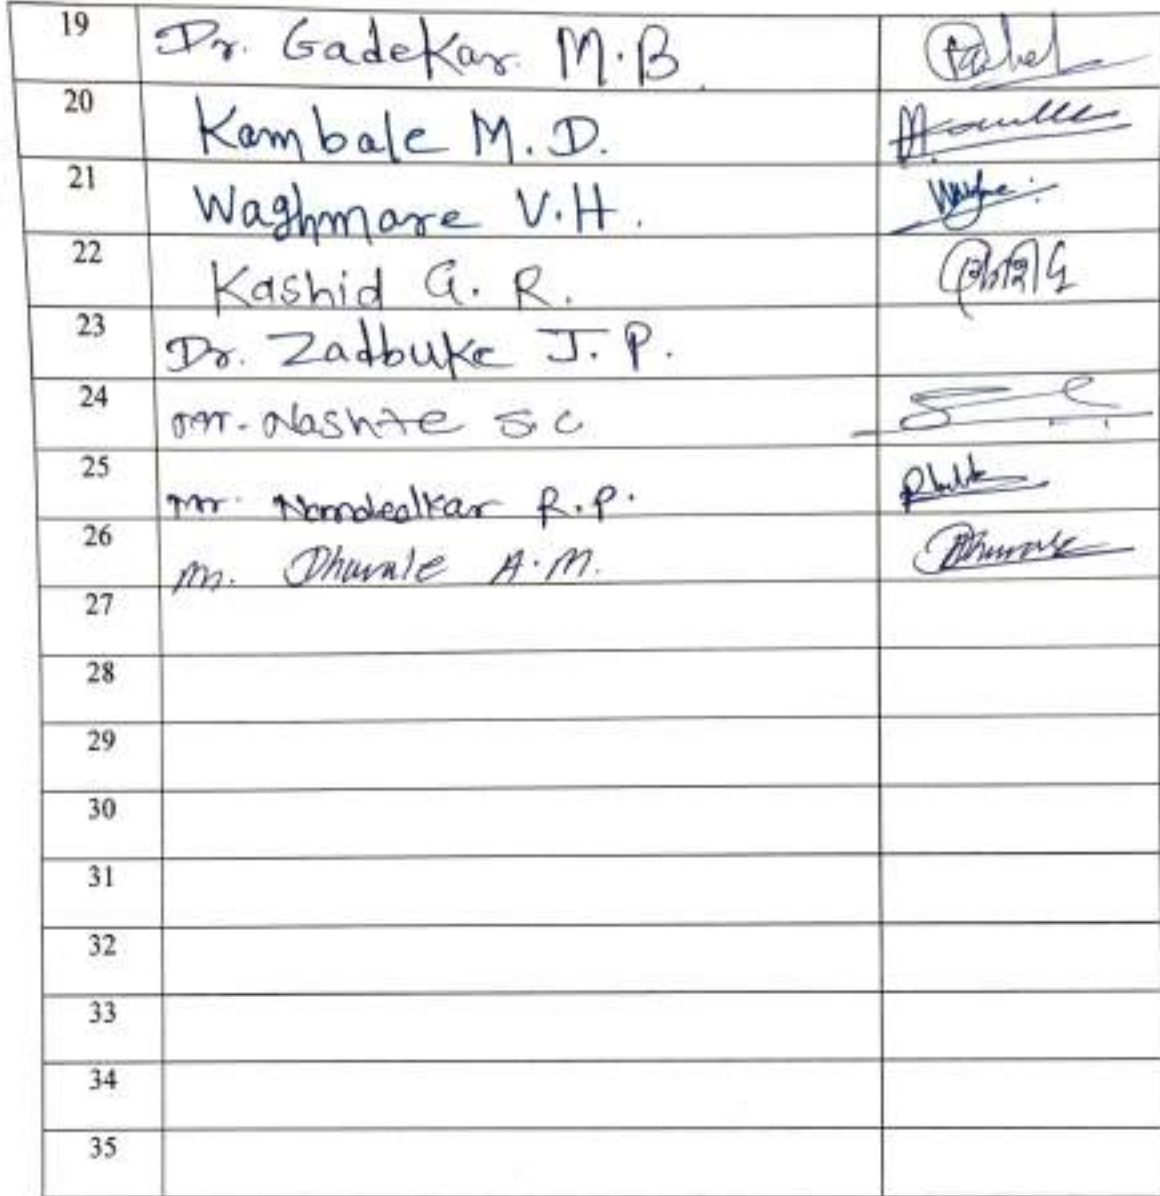 19 Dr. Gadekar M.B.
20 Kambale M.D.
21 Waghmare V.H.
22 Kashid G.R.
23 Dr. Zadbuke J.P.
24 Mr. Nashte S.C
25 Mr. R.P.
26 M. Dhavale A.M.
27
28
29
30
31
32
33
34
35